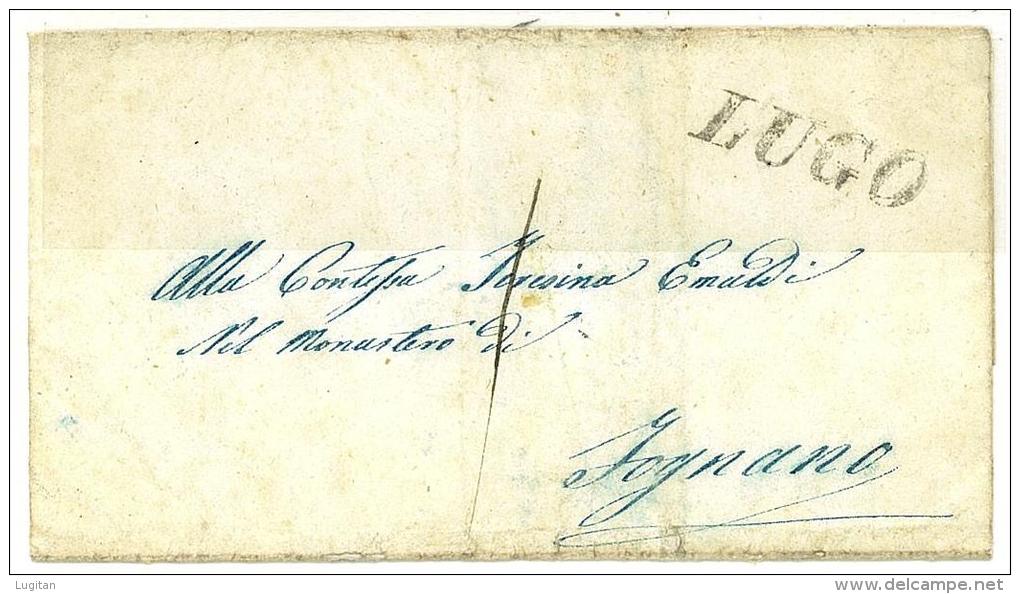 LUGO
Alla Contessa Teresina Emaldi
Nel Monastero di
Fognano
Lugitan
www.delcampe.net